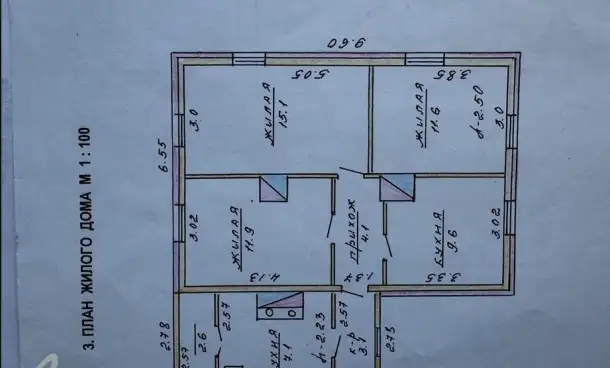 3. ПЛАН ЖИЛОГО ДОМА М 1:100
9.60
6.55
5.05
3.85
3.0
ЖИЛАЯ
15.1
ЖИЛАЯ
11.6
h-2.50
3.0
3.02
ЖИЛАЯ
11.9
4.13
ПРИХОЖ
4.1
1.34
КУХНЯ
9.6
3.02
3.35
2.78
2.57
2.6
2.57
УХНЯ
7.1
h-2.23
2.57
К-Р
2.75